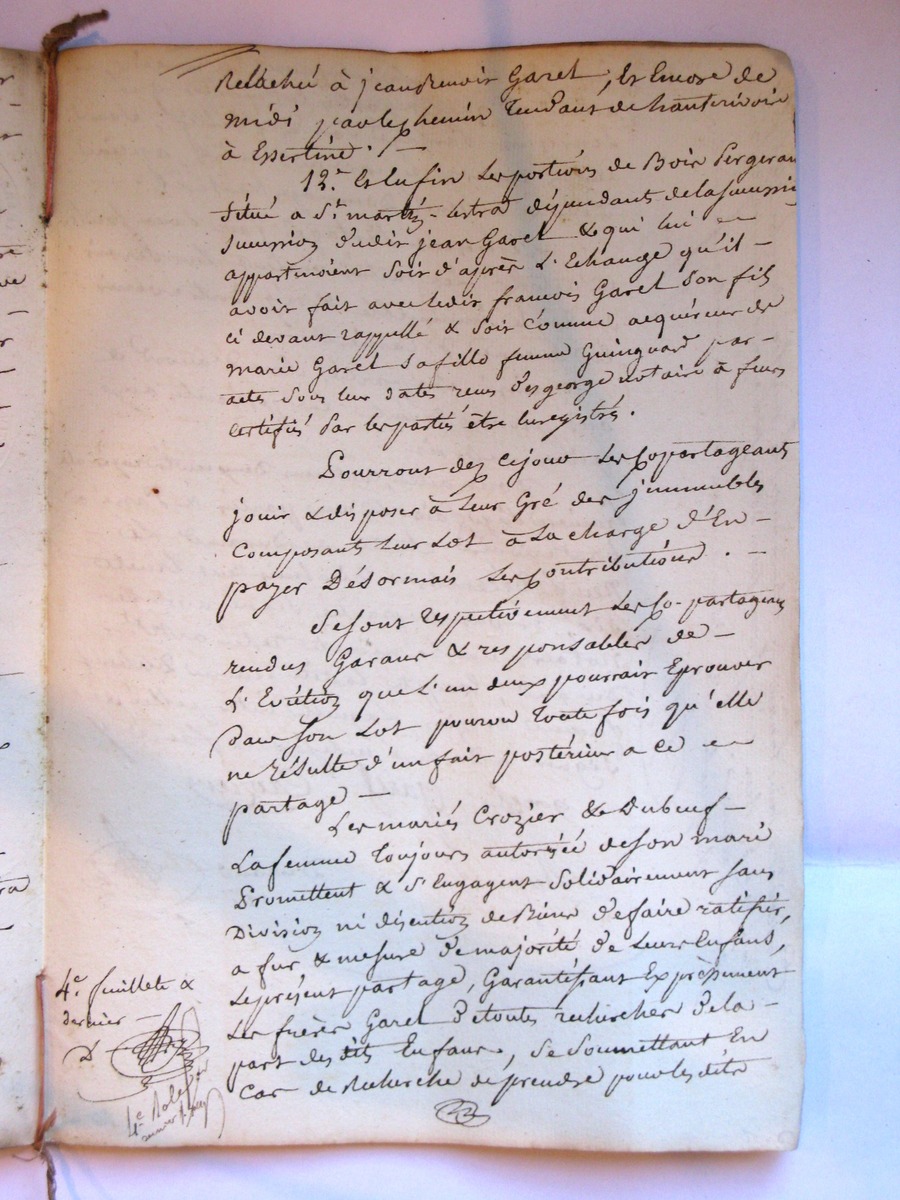 Relaché à jean Benoit Garel, Et Encore de
midi par le chemin Tendant de hauterivoir
à Essertine. —
12.e Et Enfin Les portions de Bois
Situé a St martin-Lestra dépendants de la succession
succession dudit jean Garel & qui lui
appartinoient Soit d'après L'Echange qu'il —
avoit fait avec ledit francois Garel Son fils
ci devant rappellé & Soit Comme acquéreur de
marie Garel Sa fille femme Guinguard par —
actes Sous leur dates recus Desgeorge notaire à feurs
certifiés Par les partiés être Enregistrés.
Pourront dez ce jour Les Copartageants
jouir & disposer à Leur Gré des jmmeubles
Composants Leur Lot à La charge d'En —
payer Désormais Les Contributions. —
Se sont respectivement Les Co-partageans
rendus Garans & responsables de —
L'Eviction que L'un deux pourrait Eprouver
Dans Son Lot pourvu Toute fois qu'elle
ne résulte d'un fait postérieur a ce
partage —
Les mariés Crozier & Dubeuf —
La femme Toujours autorisée de Son mari
Promettent & S'Engagent Solidairement Sans
Division ni discution de Biens de faire ratifier,
a fur & mesure de majorité de Leurs Enfans,
Le présent partage, Garantissant Expressément
Les frères Garel de toutes recherches de la —
part des dits Enfans, Se Soumettant En
Cas de Recherche de prendre pour les dits
4.e feuillets &
dernier —
D
4.e Role